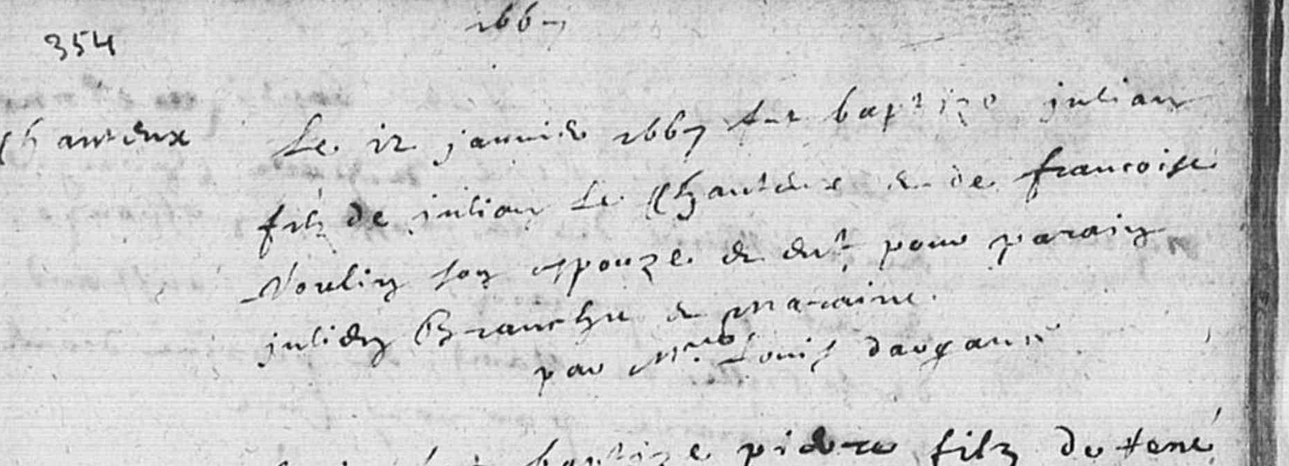 1667
354
Chanteux
Le 12 janvier 1667 fut baptize julian
filz de julian Le Chanteux & de francoise
Noulin son espouze & eut pour parain
julien Branchu & maraine.
par Mre Louis
baptize pierre filz de rené